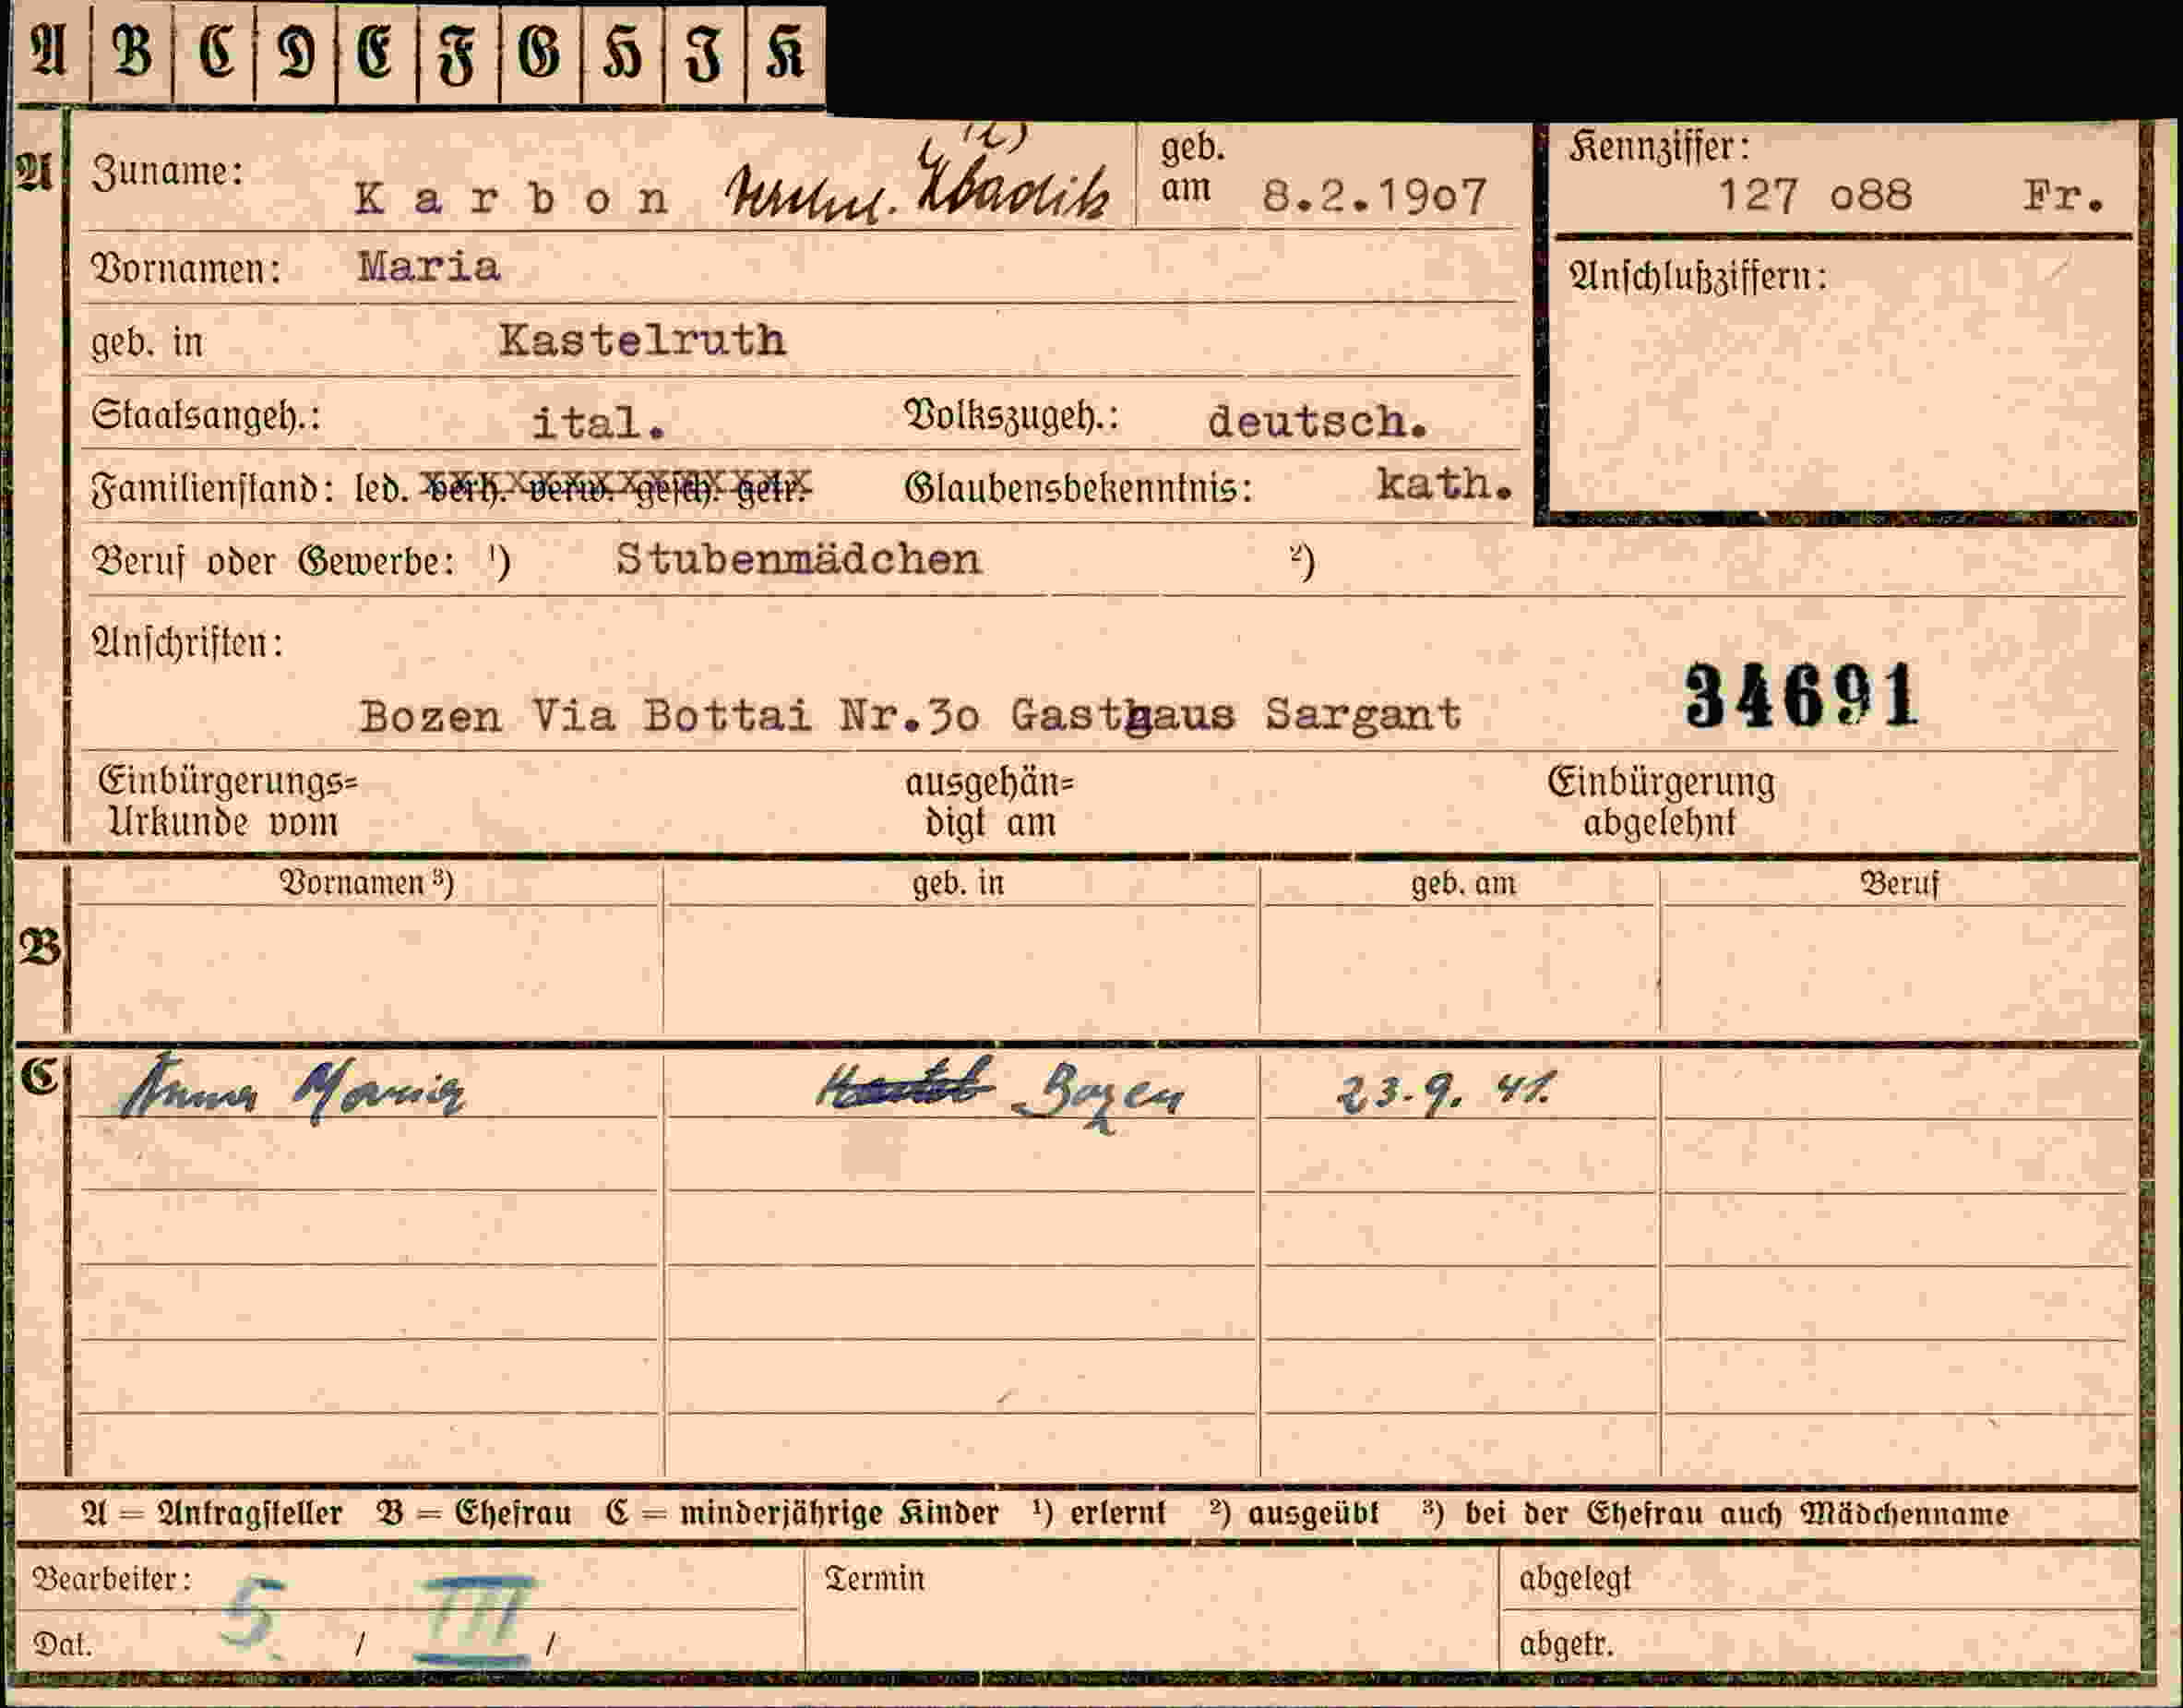 A B C D E F G H I K
A Zuname: Karbon verehel. geb. am 8.2.19o7
Kennziffer: 127 o88 Fr.
Vornamen: Maria
Anschlußziffern:
geb. in Kastelruth
Staatsangeh.: ital. Volkszugeh.: deutsch.
Familienstand: led. verh. verw. gesch. getr. Glaubensbekenntnis: kath.
Beruf oder Gewerbe: ¹) Stubenmädchen ²)
Anschriften:
34691
Bozen Via Bottai Nr.3o Gasthaus Sargant
Einbürgerungs=
Urkunde vom
ausgehän=
digt am
Einbürgerung
abgelehnt
Vornamen ³) geb. in geb. am Beruf
B
C Anna Maria Bozen 23.9.41.
A = Antragsteller B = Ehefrau C = minderjährige Kinder ¹) erlernt ²) ausgeübt ³) bei der Ehefrau auch Mädchenname
Bearbeiter: Termin abgelegt
5 III
Dat. / / abgetr.